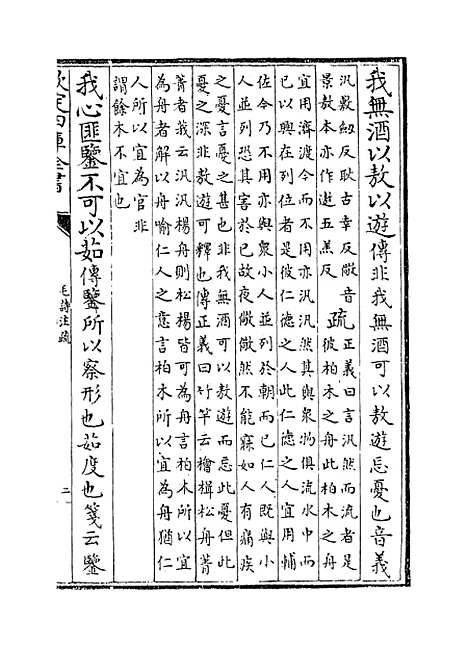 我無酒以敖以遊傳非我無酒可以敖遊忘憂也音義
汎敷劔反耿古幸反儆音
景敖本亦作遨五羔反
疏
正義曰言汎然而流者是
彼柏木之舟此柏木之舟
宜用濟渡今而不用亦汎汎然其與衆物俱流水中而
已以興在列位者是彼仁德之人此仁德之人宜用輔
佐今乃不用亦與衆小人並列於朝而已仁人既與小
人並列恐其害於已故夜儆儆然不能寐如人有痛疾
之憂言憂之甚也非我無酒可以敖遊而忘此憂但此
憂之深非敖遊可釋也傳正義曰竹竿云檜楫松舟菁
菁者莪云汎汎楊舟則松楊皆可為舟言柏木所以宜
為舟者解以舟喻仁人之意言柏木所以宜為舟猶仁
人所以宜為官非
謂餘木不宜也
我心匪鑒不可以茹傳鑒所以察形也茹度也箋云鑒
欽定四庫全書
毛詩注疏
二